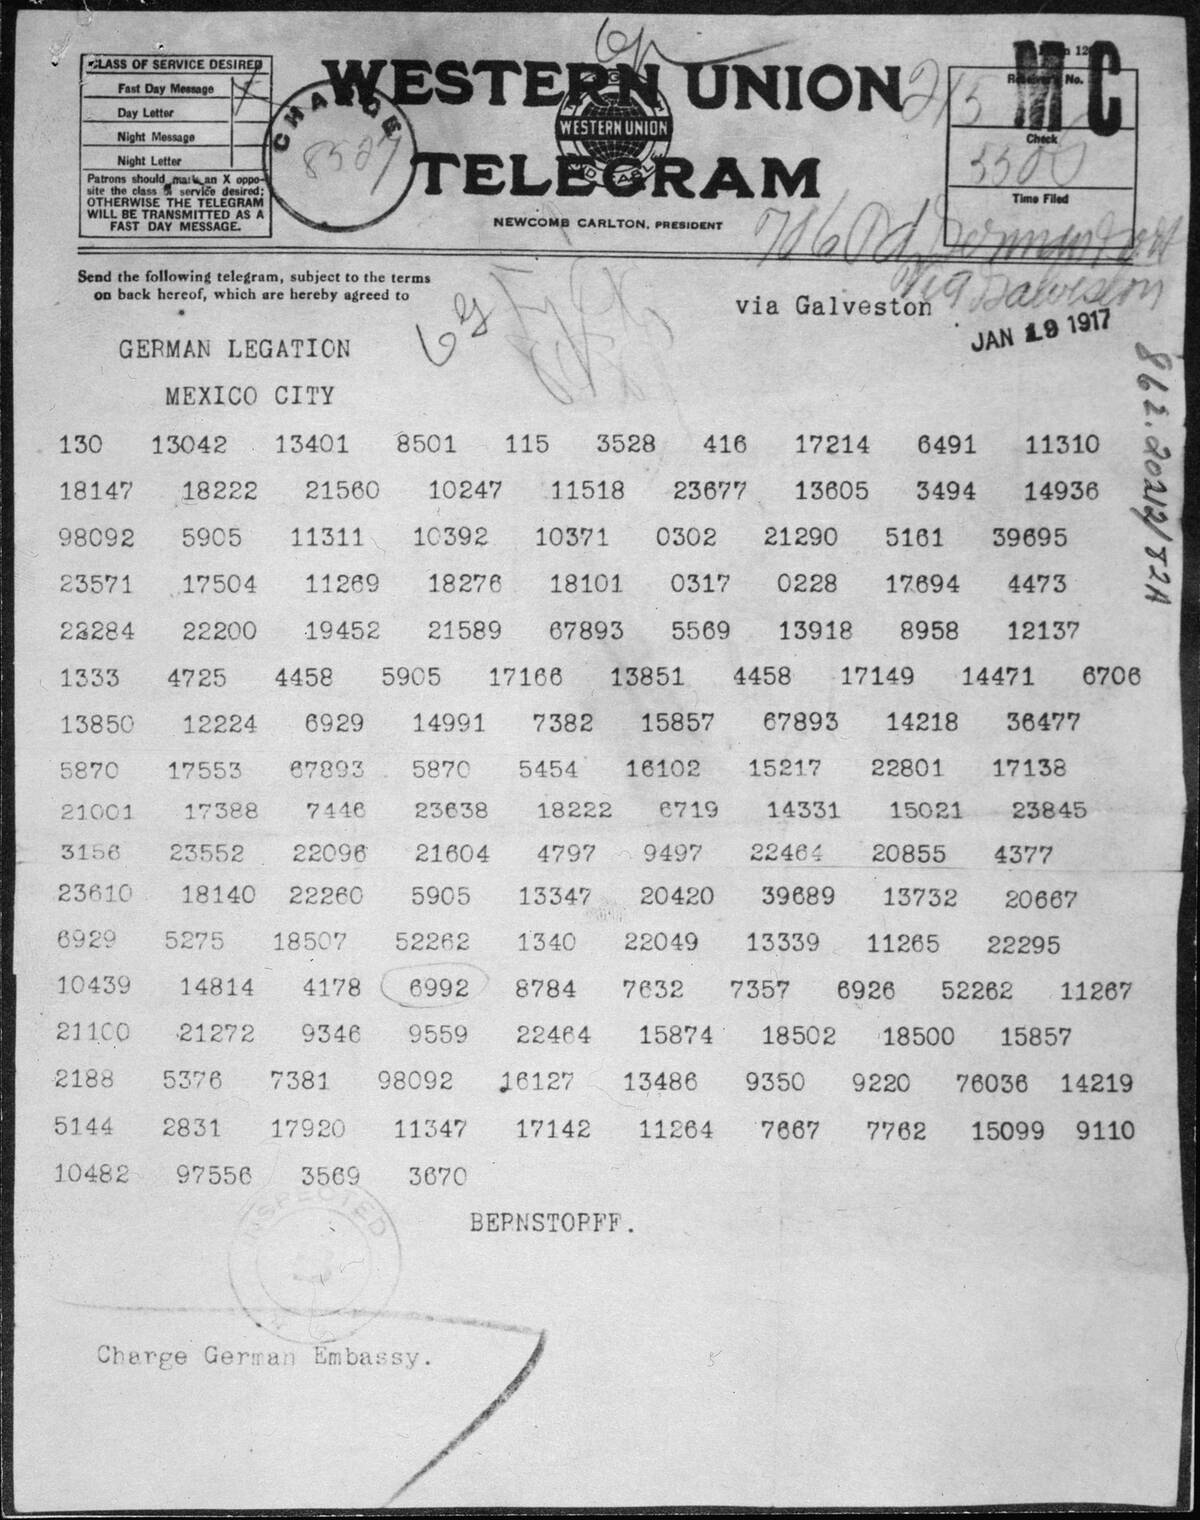 CLASS OF SERVICE DESIRED
Fast Day Message
Day Letter
Night Message
Night Letter
Patrons should mark an X oppo-
site the class of service desired;
OTHERWISE THE TELEGRAM
WILL BE TRANSMITTED AS A
FAST DAY MESSAGE.
CHARGE
WESTERN UNION
WESTERN UNION
TELEGRAM
NEWCOMB CARLTON, PRESIDENT
215
MC
Receiver's No.
Check
Time Filed
Send the following telegram, subject to the terms
on back hereof, which are hereby agreed to
via Galveston
via Galveston
JAN 19 1917
GERMAN LEGATION
MEXICO CITY
862.20212/82A
130 13042 13401 8501 115 3528 416 17214 6491 11310
18147 18222 21560 10247 11518 23677 13605 3494 14936
98092 5905 11311 10392 10371 0302 21290 5161 39695
23571 17504 11269 18276 18101 0317 0228 17694 4473
22284 22200 19452 21589 67893 5569 13918 8958 12137
1333 4725 4458 5905 17166 13851 4458 17149 14471 6706
13850 12224 6929 14991 7382 15857 67893 14218 36477
5870 17553 67893 5870 5454 16102 15217 22801 17138
21001 17388 7446 23638 18222 6719 14331 15021 23845
3156 23552 22096 21604 4797 9497 22464 20855 4377
23610 18140 22260 5905 13347 20420 39689 13732 20667
6929 5275 18507 52262 1340 22049 13339 11265 22295
10439 14814 4178 6992 8784 7632 7357 6926 52262 11267
21100 21272 9346 9559 22464 15874 18502 18500 15857
2188 5376 7381 98092 16127 13486 9350 9220 76036 14219
5144 2831 17920 11347 17142 11264 7667 7762 15099 9110
10482 97556 3569 3670
BERNSTORFF.
INSPECTED
Charge German Embassy.